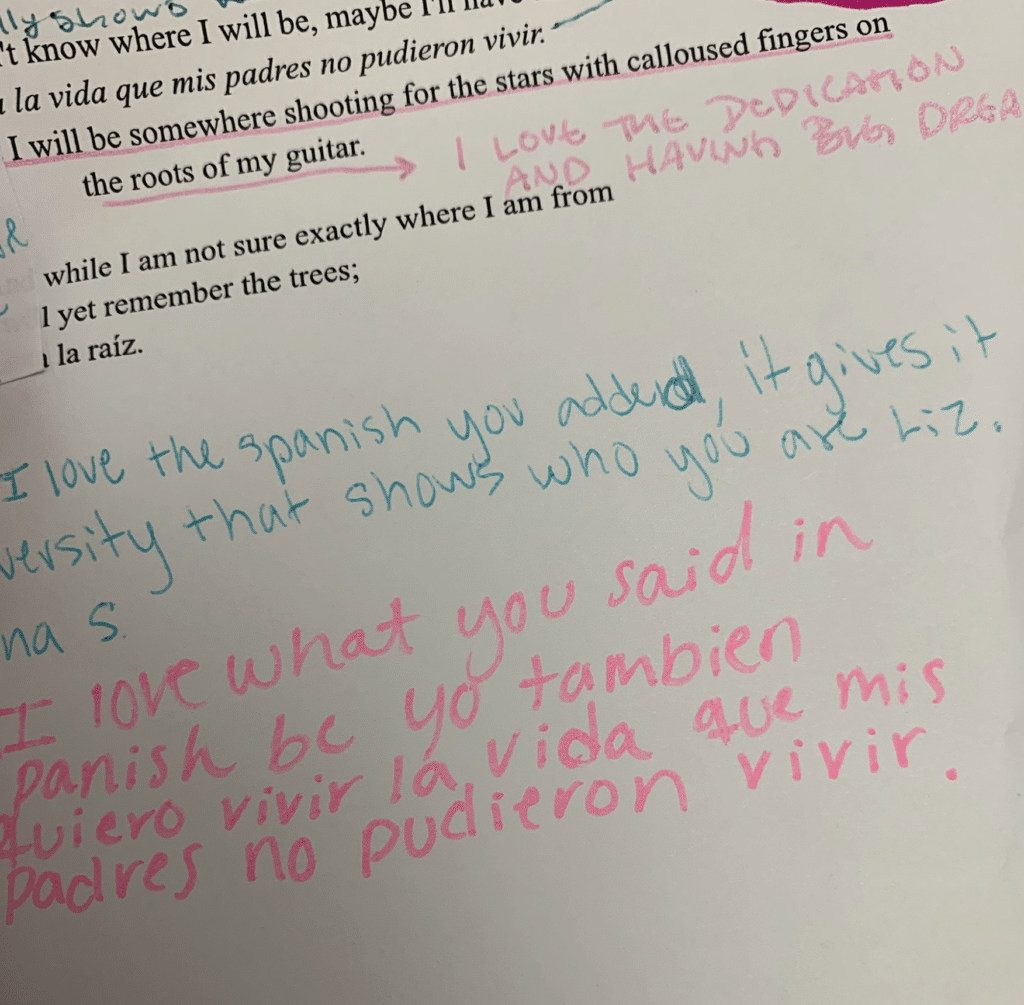 lly shows
't know where I will be, maybe I'll
la vida que mis padres no pudieron vivir.
I will be somewhere shooting for the stars with calloused fingers on
the roots of my guitar.
I LOVE THE DEDICATION
AND HAVING BUG DREA
while I am not sure exactly where I am from
l yet remember the trees;
la raíz.
I love the spanish you added, it gives it
versity that shows who you are Liz.
na S.
I love what you said in
panish bc yo tambien
quiero vivir la vida que mis
padres no pudieron vivir.